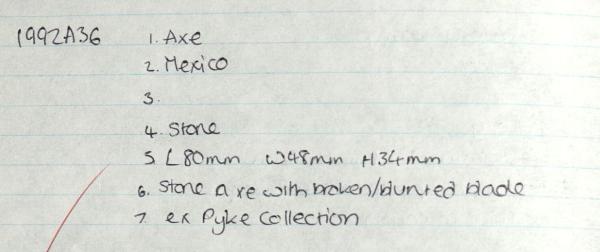 1992A36 1. Axe
2. Mexico
3.
4. Stone
5 L 80mm W48mm H34mm
6. Stone axe with broken/blunted blade
7. ex Pyke Collection